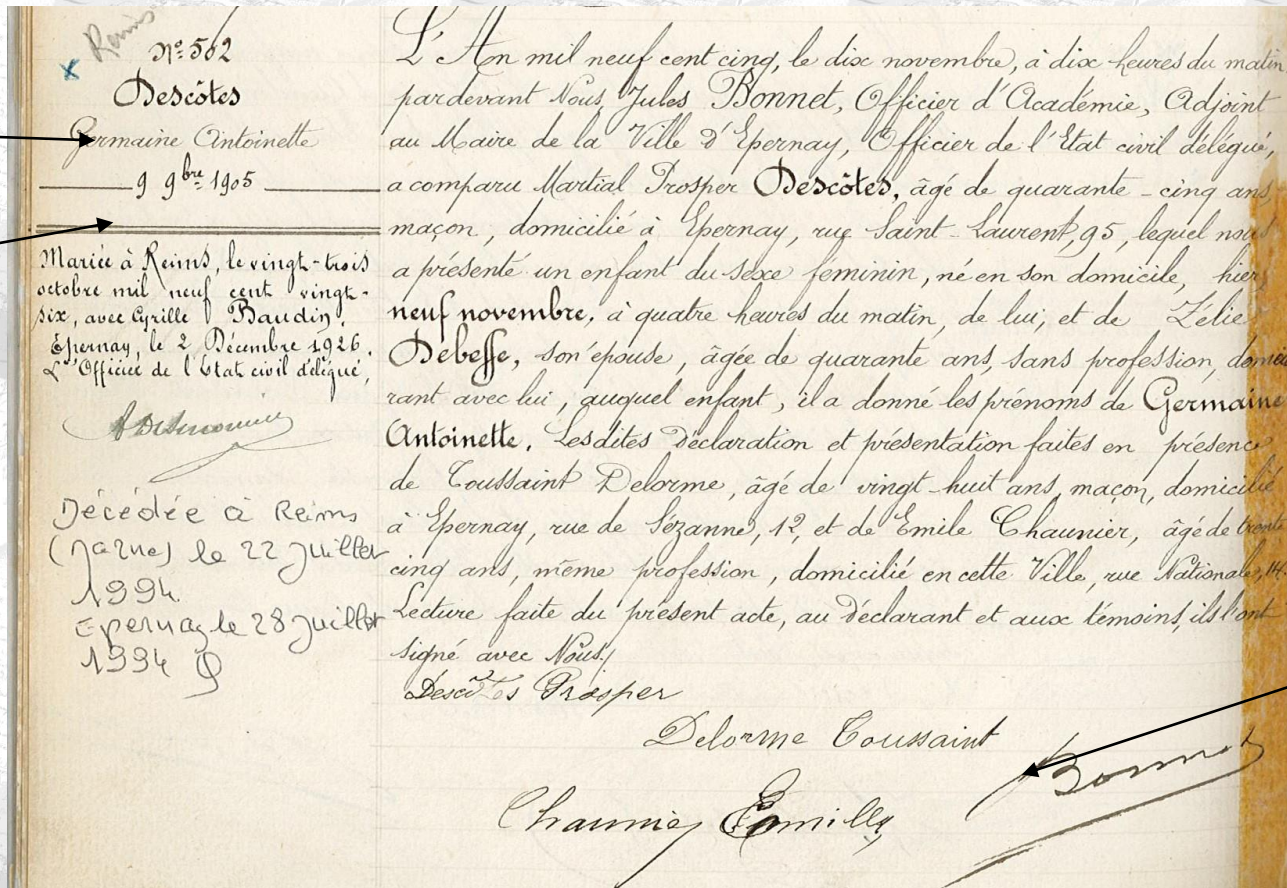 Reims
Nº 502
Descôtes
Germaine Antoinette
9 9bre 1905
Mariée à Reims, le vingt-trois
octobre mil neuf cent vingt-
six, avec Cyrille Baudin.
Epernay, le 2 Décembre 1926.
L'Officier de l'Etat civil délégué,
Décédée à Reims
(Marne) le 22 Juillet
1994
Epernay le 28 Juillet
1994
L'An mil neuf cent cinq, le dix novembre, à dix heures du matin
pardevant Nous, Jules Bonnet, Officier d'Académie, Adjoint
au Maire de la Ville d'Epernay, Officier de l'Etat civil délégué,
a comparu Martial Prosper Descôtes, âgé de quarante-cinq ans,
maçon, domicilié à Epernay, rue Saint-Laurent, 95, lequel nous
a présenté un enfant du sexe féminin, né en son domicile, hier,
neuf novembre, à quatre heures du matin, de lui, et de Zélie
Debesse, son épouse, âgée de quarante ans, sans profession, demeu
rant avec lui, auquel enfant, il a donné les prénoms de Germaine
Antoinette. Lesdites déclaration et présentation faites en présence
de Toussaint Delorme, âgé de vingt-huit ans, maçon, domicilié
à Epernay, rue de Sézanne, 12, et de Emile Chaunier, âgé de trente
cinq ans, même profession, domicilié en cette Ville, rue Nationale, 14.
Lecture faite du présent acte, au déclarant et aux témoins, ils l'ont
signé avec Nous./
Descôtes Prosper
Delorme Toussaint
Bonnet
Chaunier Emille